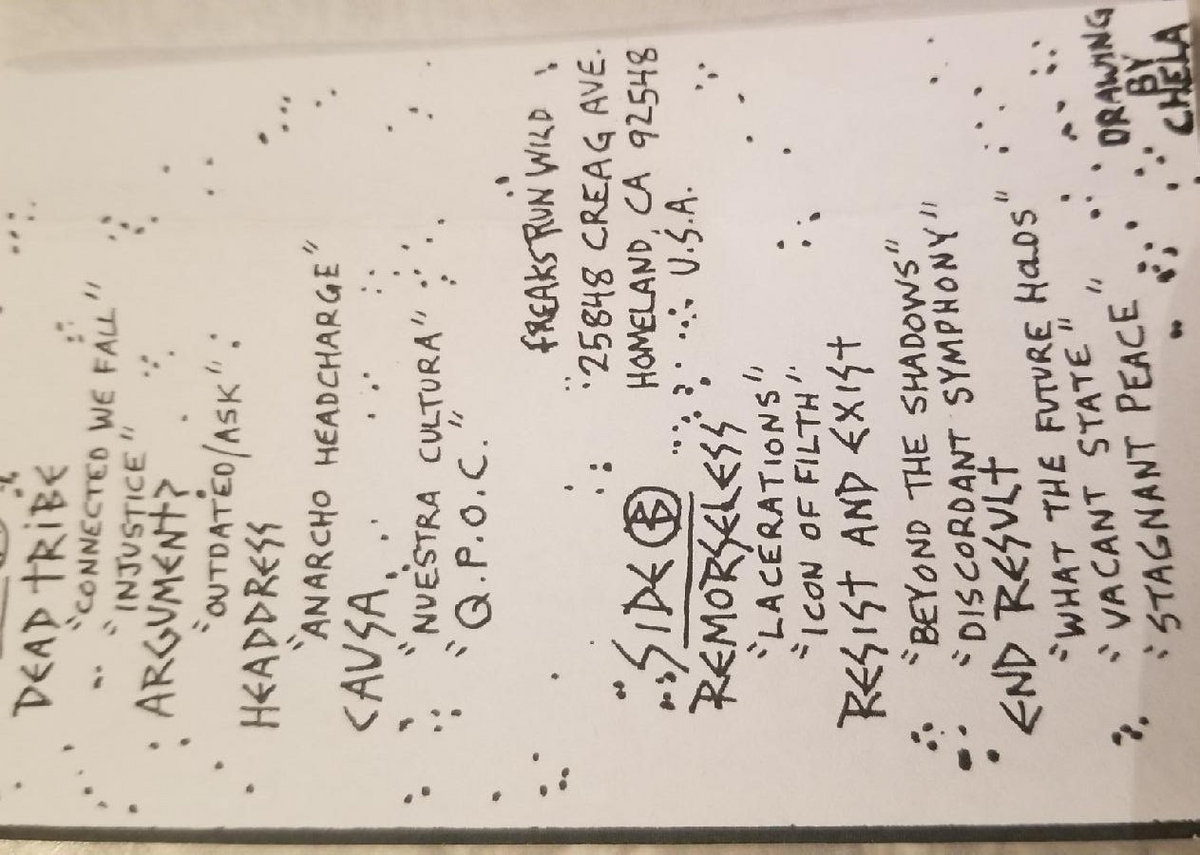 DEAD TRIBE
"CONNECTED WE FALL"
"INJUSTICE"
ARGUMENT?
"OUTDATED/ASK"
HEADDRESS
"ANARCHO HEADCHARGE"
CAUSA
"NUESTRA CULTURA"
"Q.P.O.C."
FREAKS RUN WILD
25848 CREAG AVE.
HOMELAND, CA 92548
U.S.A.
SIDE B
REMORSELESS
"LACERATIONS"
"ICON OF FILTH"
RESIST AND EXIST
"BEYOND THE SHADOWS"
"DISCORDANT SYMPHONY"
END RESULT
"WHAT THE FUTURE HOLDS"
"VACANT STATE"
"STAGNANT PEACE"
DRAWING
BY
CHELA